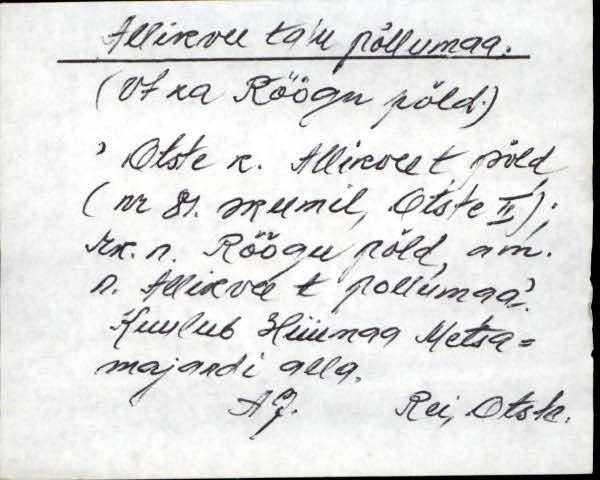 Allikvee talu põllumaa.
(Vt ka Röögu põld.)
Otste k. Allikvee t põld
(nr 81. skeemil, Otste II);
rk. n. Röögu põld, am.
n. Allikvee t põllumaa.
Kuulub Hiiumaa Metsa=
majandi alla.
AJ. Rei, Otste.